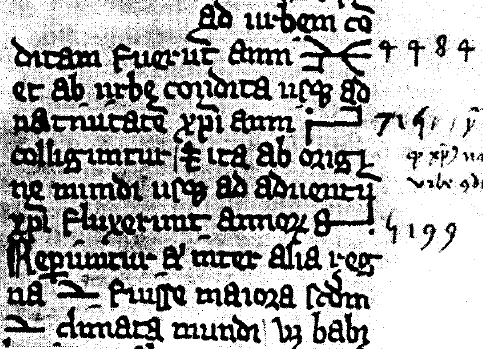 ad urbem cō
ditam fuerūt anni 4484
et ab urbe condita usqꝫ ad
natiuitatē xp̄i anni 715
colligūtur ita ab origi
ne mundi usqꝫ ad aduentū
xp̄i fluxerunt annoꝝ 5199
Repiuntur inter alia reg
na fuisse maiora scd̄m
climata mundi babi